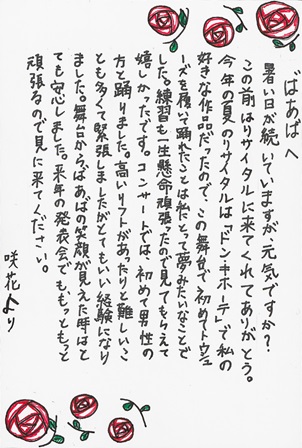 ばあばへ
暑い日が続いていますが、元気ですか？
この前はリサイタルに来てくれてありがとう。
今年の夏のリサイタルは「ドン・キホーテ」で私の
好きな作品だったので、この舞台で初めてトウシュ
ーズを履いて踊れたことは私にとって夢みたいなことで
した。練習も一生懸命頑張ったので見てもらえて
嬉しかったです。コンサートでは、初めて男性の
方と踊りました。高いリフトがあったりと難しいこ
とも多くて緊張しましたがとてもいい経験になり
ました。舞台からばあばの笑顔が見えた時はと
ても安心しました。来年の発表会でももっともっと
頑張るので見に来てください。
咲花より